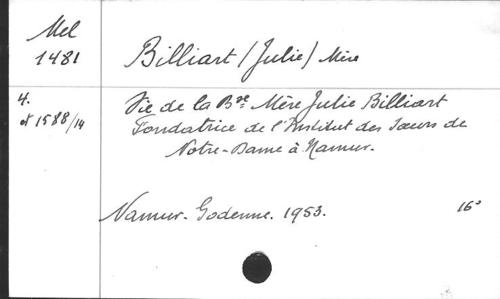 Mel
1481
Billiart (Julie) Mère
4.
et 1588/14
Vie de la Bse Mère Julie Billiart
Fondatrice de l'Institut des Sœurs de
Notre-Dame à Namur.
Namur. Godenne. 1953. 16°